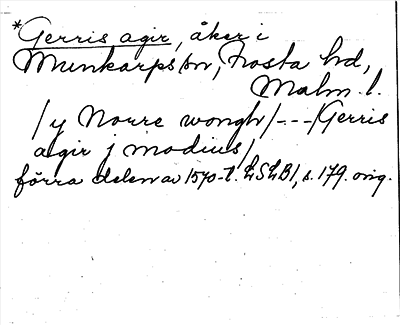 *Gerris agir, åker i
Munkarps sn, Frosta hd,
Malm. l.
/y Norre wongh/---/Gerris
agir j modius/
förra delen av 1570-t. LSLB1, s. 179. orig.